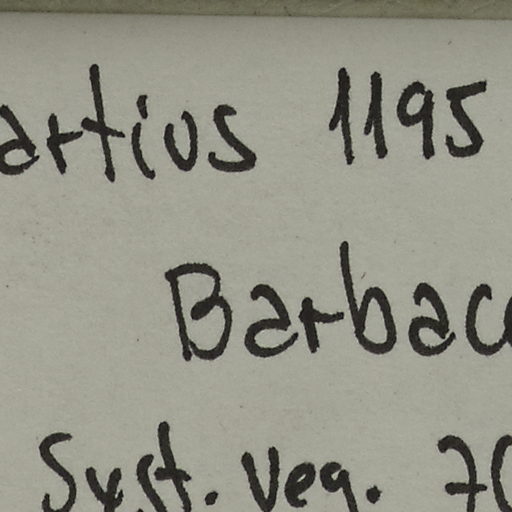 artius 1195
Barbac
Syst. Veg. 70